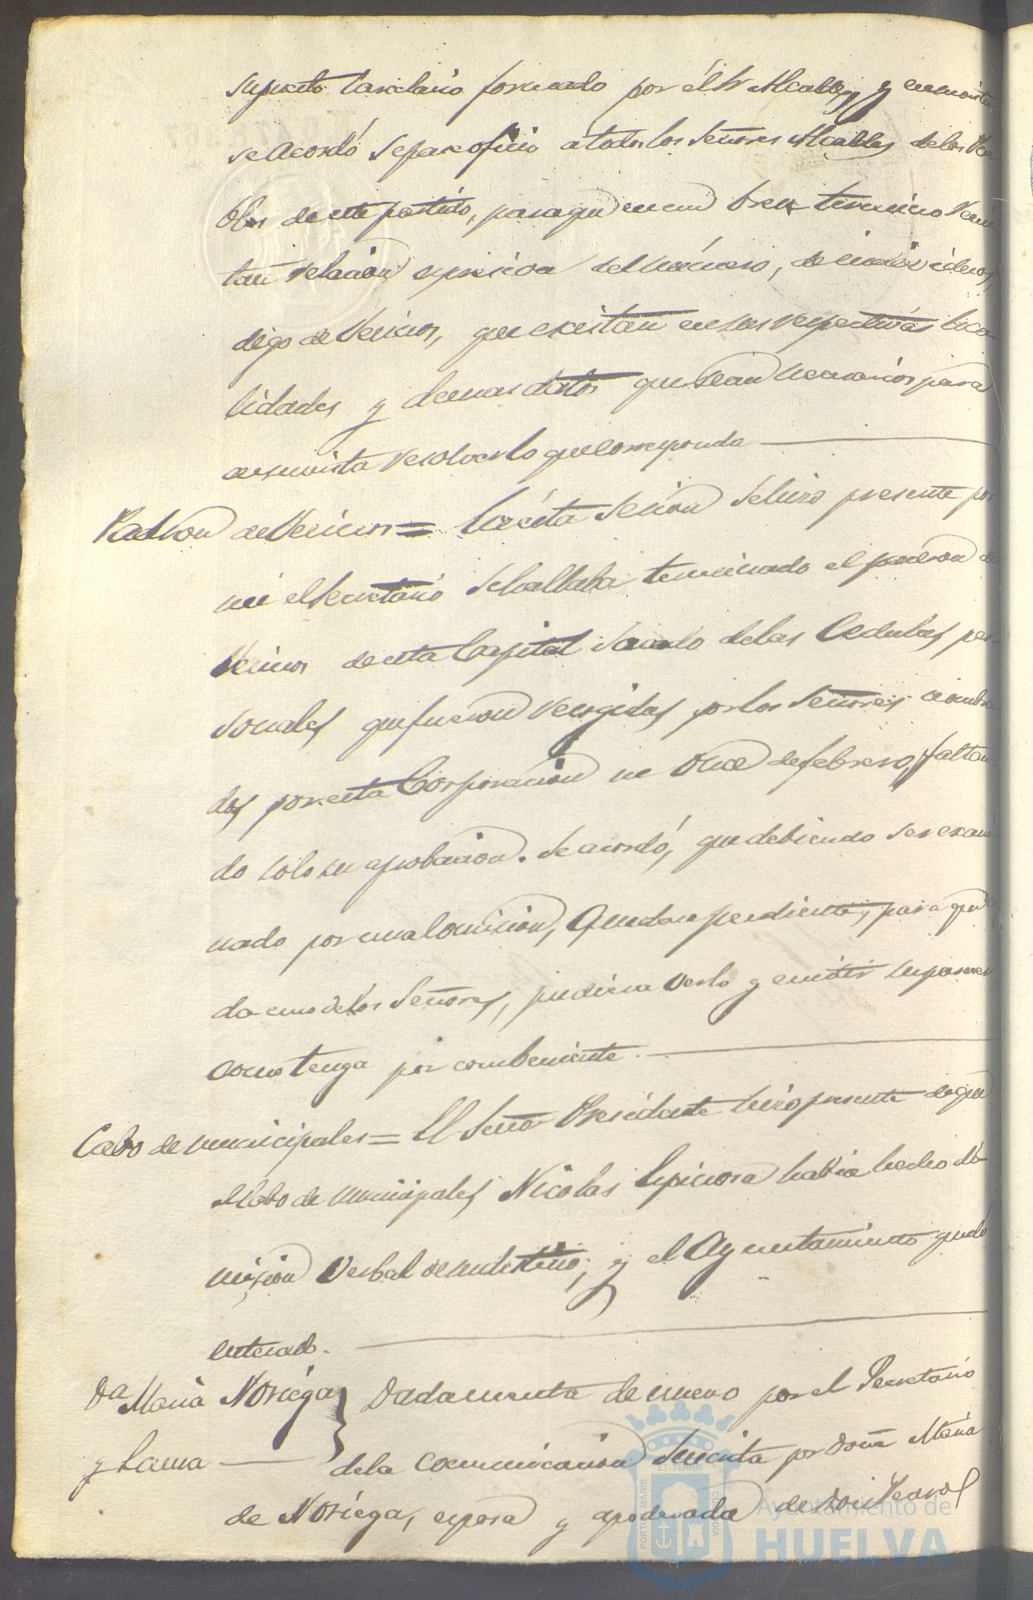 supuesto Carcelario formado por él Sr Alcalde, y en su vista
se Acordó se pase oficio a todos los Señores Alcaldes de los Pue
blos de este partido, para que en un brebe termino remi
tan relacion expresiva del número, de individuos,
digo de Vecinos, que existan en sus respectivas loca
lidades y demas datos que sean necesarios para
en su vista resolver lo que corresponda
Padron de Vecinos = En ésta Sesion se hizo presente por
mi el Secretario se hallaba terminado el padron de
Vecinos de esta Capital sacado de las Cedulas per
sonales que fueron recogidas por los Señores nombra
dos por esta Corporacion en Once de febrero, faltan
do solo su aprobacion. Se acordó, que debiendo ser exami
nado por una Comision, Quedara pendiente, para que ca
da uno de los Señores, pudiera verlo y emitir su parecer
como tenga por combeniente.
Cabo de municipales = El Señor Presidente hizo presente de que
el Cabo de municipales, Nicolas Espinosa habia hecho di
mision Verbal de su destino; y el Ayuntamiento quedó
enterado.
Dª Maria Noriega } Dada cuenta de nuevo por el Secretario
y Lama de la comunicacion suscrita por Doña Maria
de Noriega, esposa y apoderada de Don
PORTUS MARIS ET TERRAE CUSTODIA
Ayuntamiento de
HUELVA